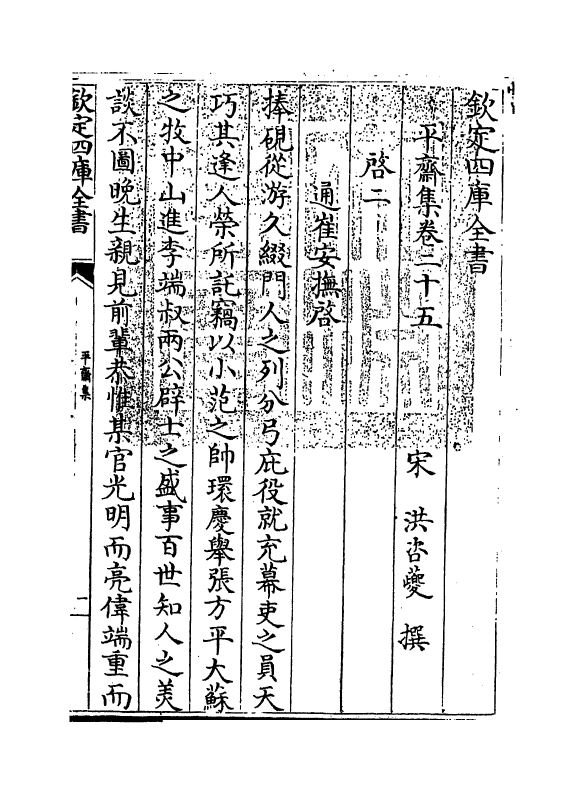 欽定四庫全書
平齋集卷二十五
宋 洪咨夔 撰
啓二
通崔安撫啓
捧硯從游久綴門人之列分弓庇役就充幕吏之員天
巧其逢人榮所託竊以小范之帥環慶舉張方平大蘇
之牧中山進李端叔兩公辟士之盛事百世知人之美
談不圖晚生親見前輩恭惟某官光明而亮偉端重而
欽定四庫全書
平齋集